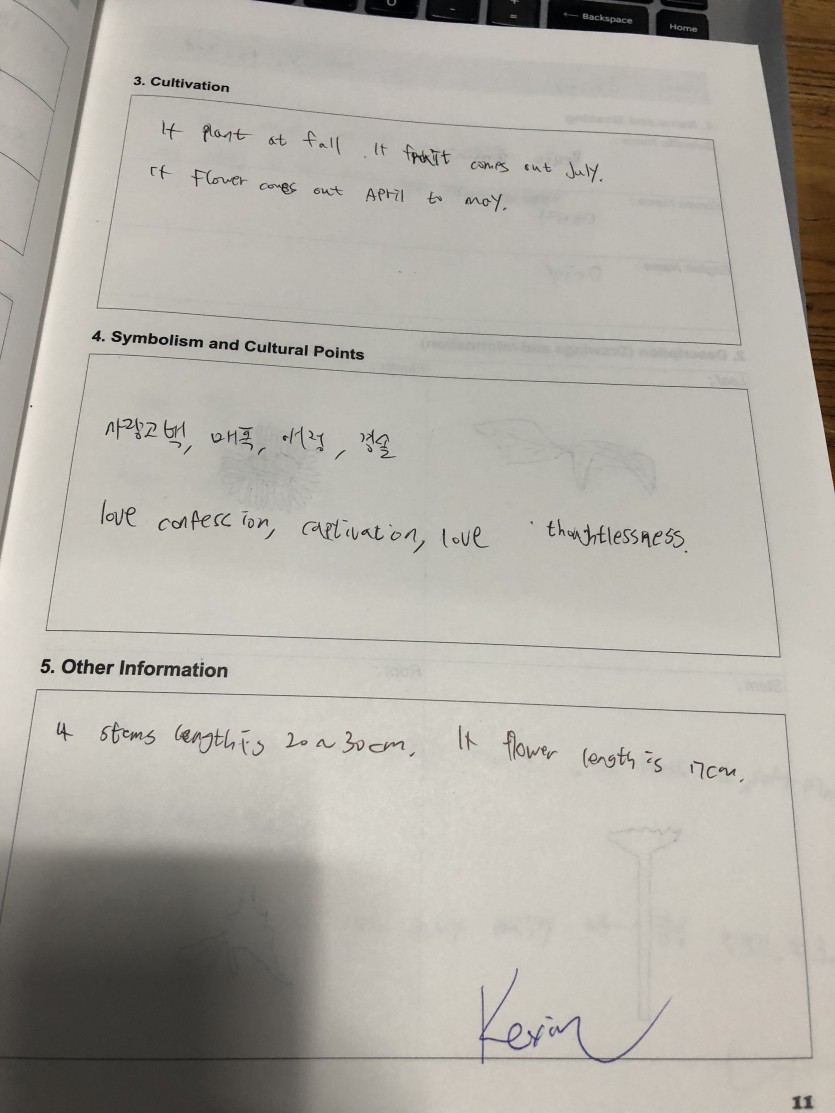 Backspace
Home
3. Cultivation
It plant at fall. It fruit comes out July.
It Flower comes out April to may.
4. Symbolism and Cultural Points
사랑고백, 매혹, 애정, 경솔
love confession, captivation, love thoughtlessness.
5. Other Information
It stems length is 20~30cm. It flower length is 17cm.
Kevin
11